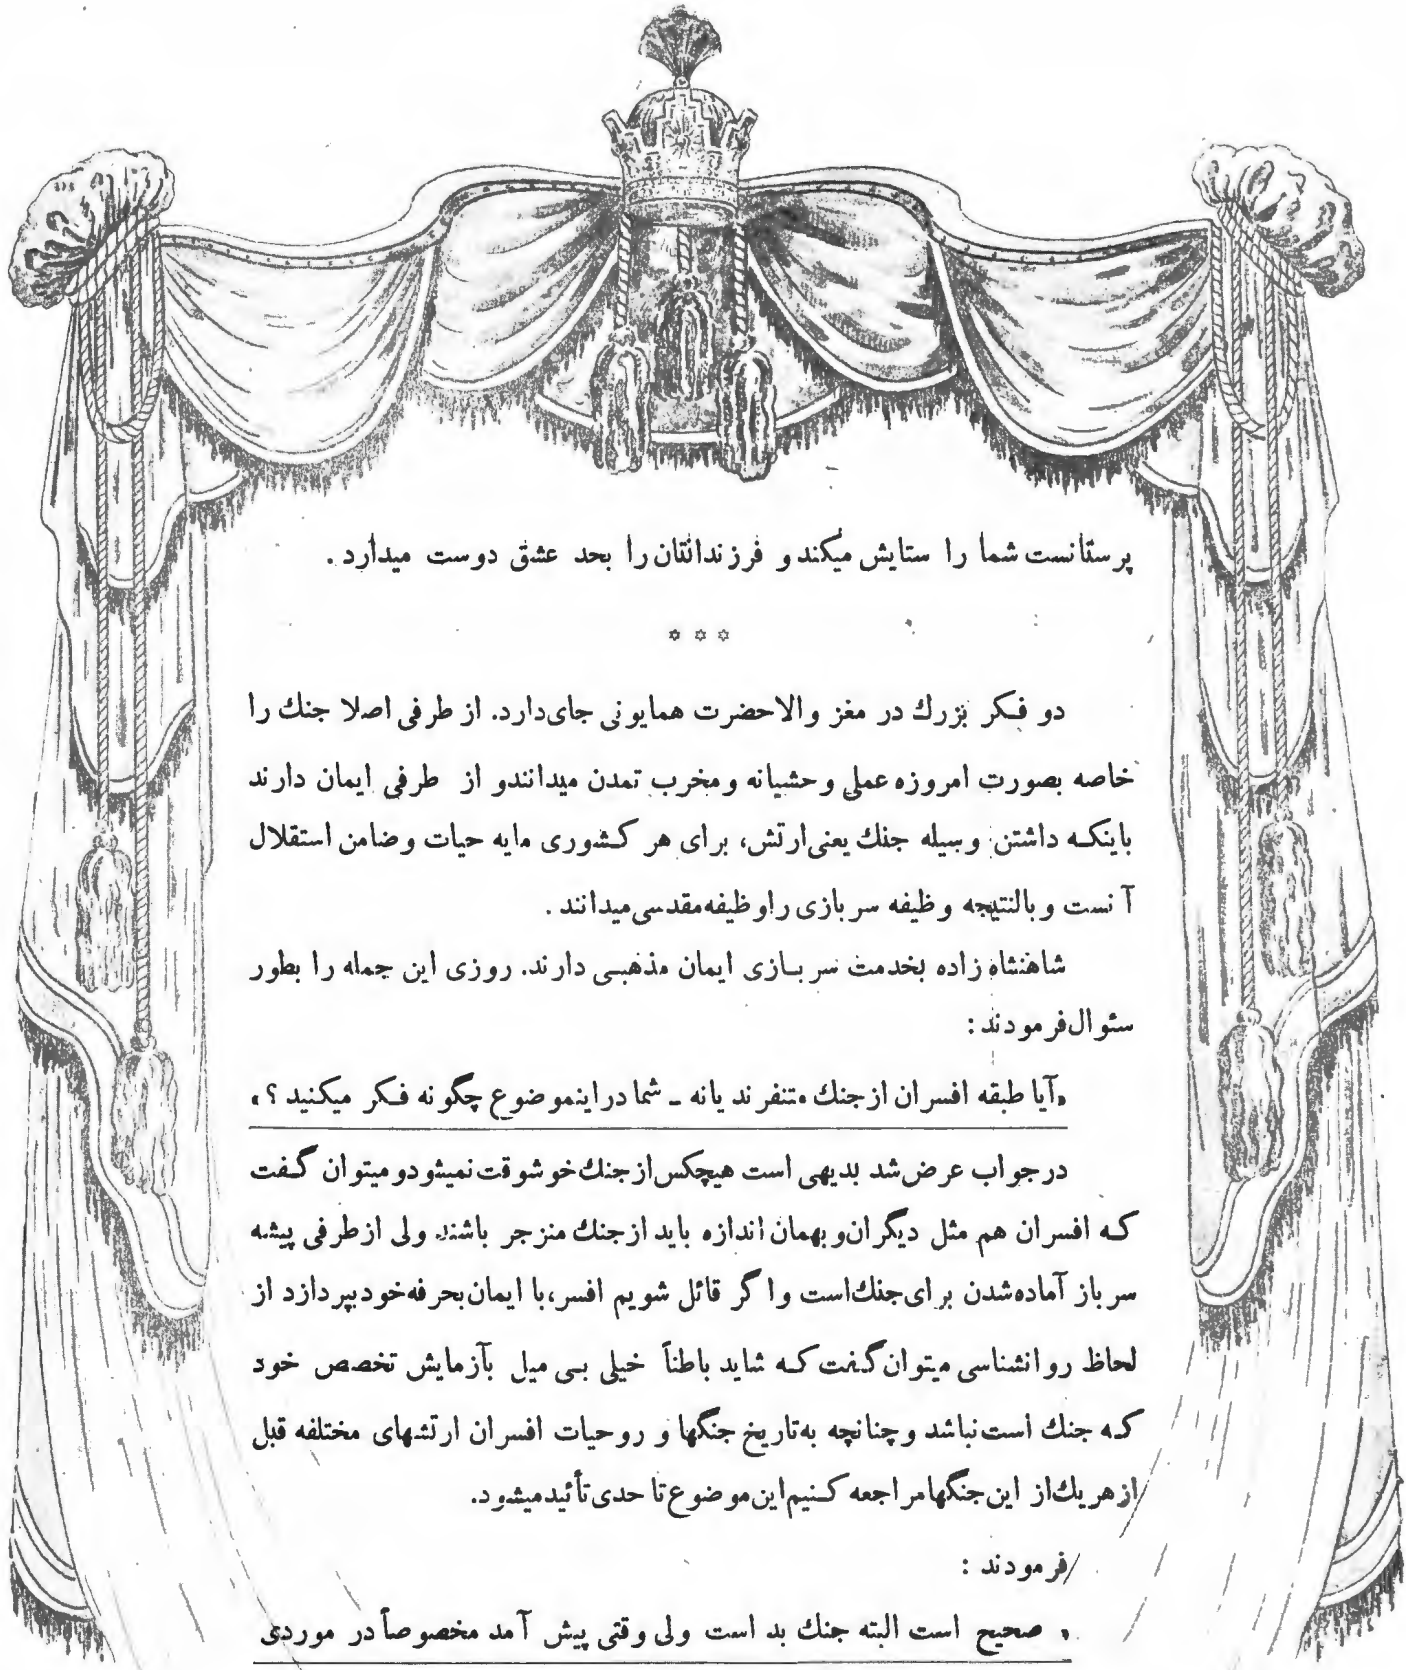 پرستانست شما را ستایش میکند و فرزندانتان را بحد عشق دوست میدارد.
* * *
دو فکر بزرك در مغز والاحضرت همایونی جای دارد. از طرفی اصلا جنك را
خاصه بصورت امروزه عملی وحشیانه و مخرب تمدن میدانند و از طرفی ایمان دارند
باینکه داشتن وسیله جنك یعنی ارتش، برای هر کشوری مایه حیات و ضامن استقلال
آنست و بالنتیجه وظیفه سربازی را وظیفه مقدسی میدانند.
شاهنشاه زاده بخدمت سربازی ایمان مذهبی دارند. روزی این جمله را بطور
سئوال فرمودند:
«آیا طبقه افسران از جنك متنفرند یا نه ـ شما در اینموضوع چگونه فکر میکنید؟»
در جواب عرض شد بدیهی است هیچکس از جنك خوشوقت نمیشود و میتوان گفت
که افسران هم مثل دیگران و بهمان اندازه باید از جنك منزجر باشند ولی از طرفی پیشه
سرباز آماده شدن برای جنك است و اگر قائل شویم افسر، با ایمان بحرفه خود بپردازد از
لحاظ روانشناسی میتوان گفت که شاید باطناً خیلی بی میل بآزمایش تخصص خود
که جنك است نباشد و چنانچه به تاریخ جنگها و روحیات افسران ارتشهای مختلفه قبل
از هر یك از این جنگها مراجعه کنیم این موضوع تا حدی تأئید میشود.
فرمودند:
«صحیح است البته جنك بد است ولی وقتی پیش آمد مخصوصاً در موردی